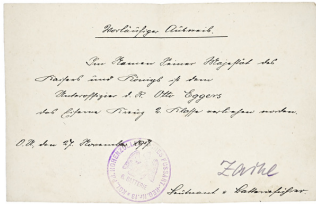 Vorläufiger Ausweis.
Im Namen Seiner Majestät des
Kaisers und Königs ist dem
Unteroffizier d. R. Otto Eggers
das Eiserne Kreuz 2. Klasse verliehen worden.
O.U., den 27. November 1917
Leutnant u. Batterieführer